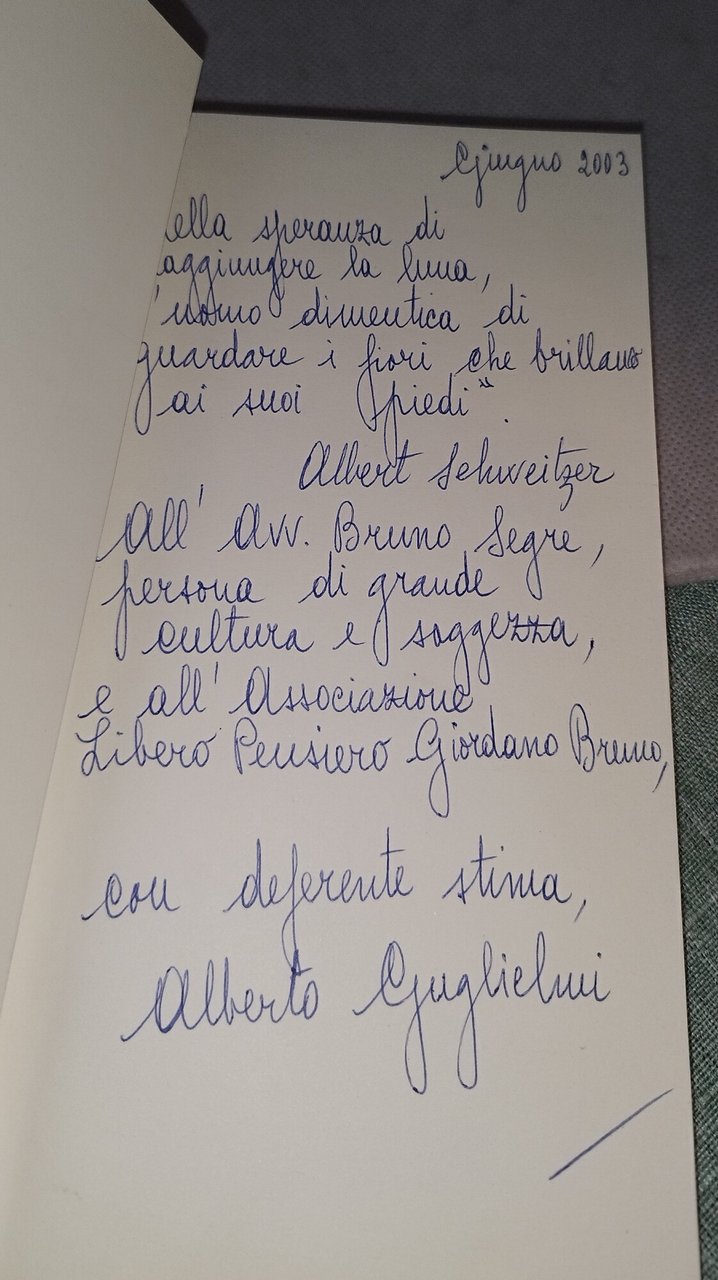 Giugno 2003
ella speranza di
aggiungere la luna,
'uomo dimentica di
guardare i fiori che brillano
ai suoi piedi".
Albert Schweitzer
All' Avv. Bruno Segre,
persona di grande
cultura e saggezza,
e all' Associazione
Libero Pensiero Giordano Bruno,
con deferente stima,
Alberto Guglielmi